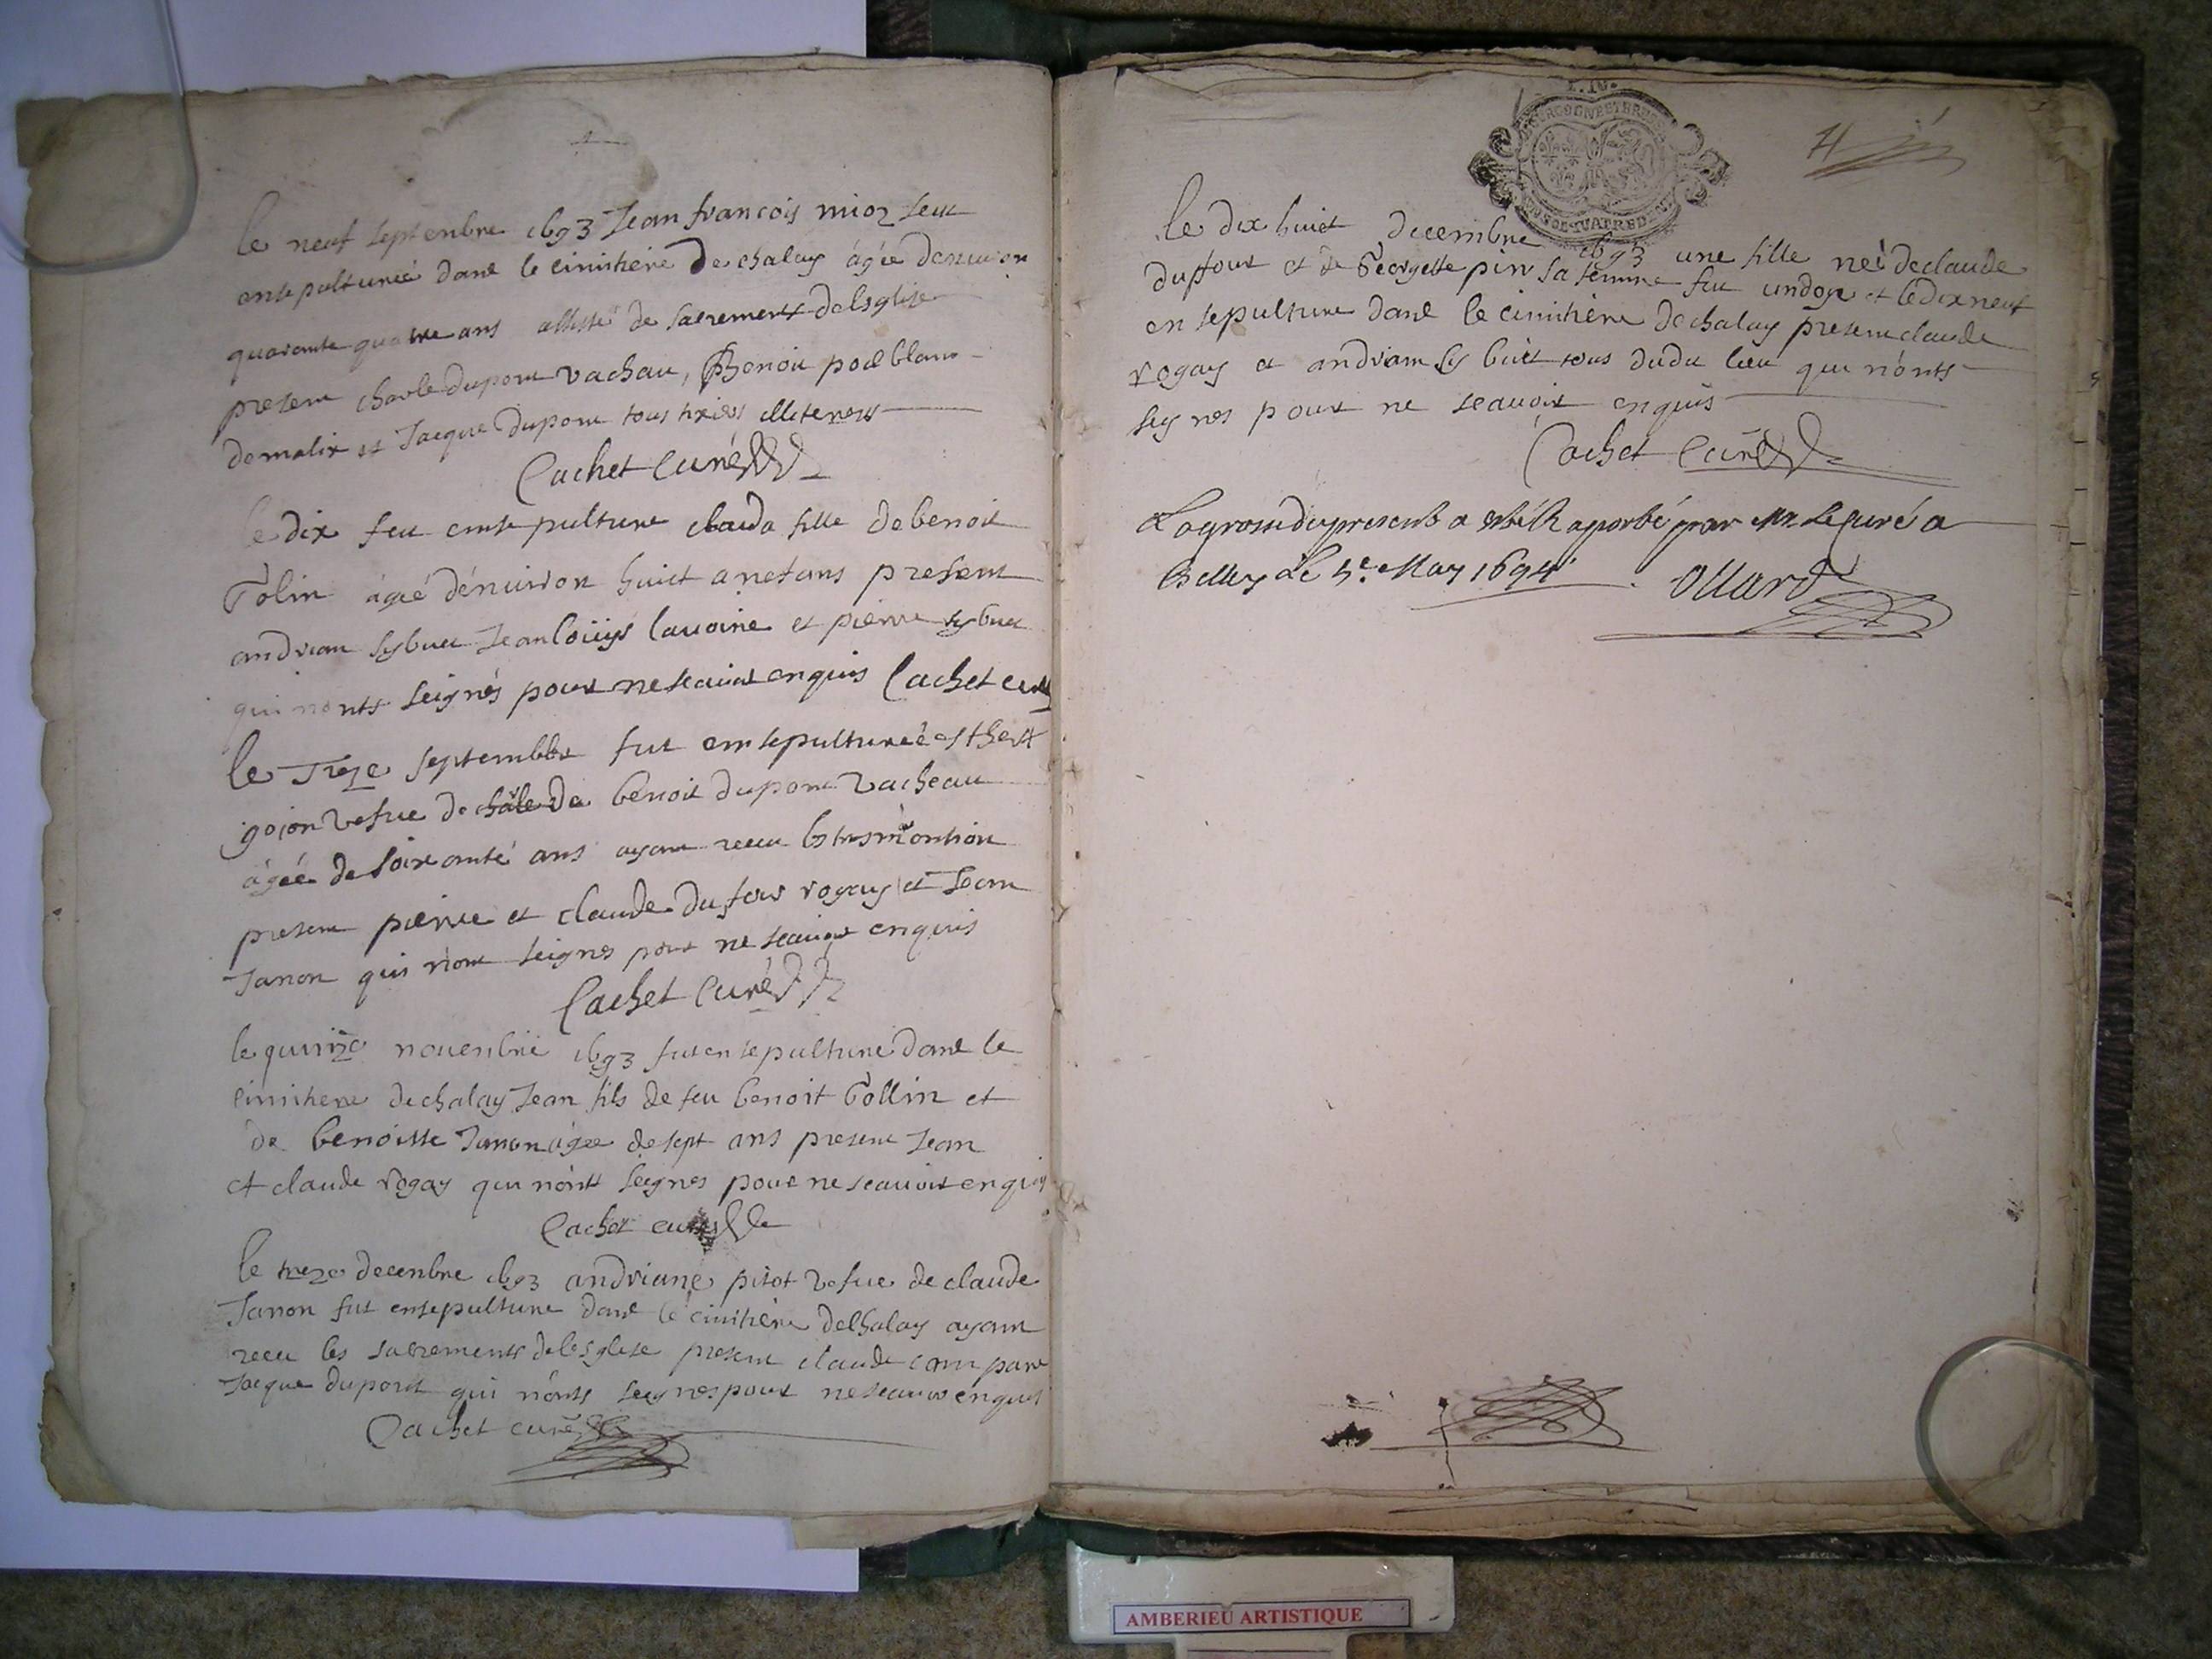 le neuf septenbre 1693 Jean francois mioz feut
ensepulturée dans le cimithere de chalay ágée denuiron
quarante quatre ans assisté de sacrements de leglise
present charle dupont vachau, Benoit poeblanc
demalix et Jacque dupont tous illiteress
Cachet curé
le dix feu ensepulture clauda fille de benoit
Tolin ágé dénuiron huict a present
andrian sybuet Jean loüys lavoine et pierre sybuet
qui nonts seignés pour ne scauoir enquis Cachet curé
le Treze septembre fut ensepulturée esthert
gojon vefue de benoit dupont vacheau
ágée de soixante ans ayant receu
present pierre et claude dufour rogay et Jean
Janon qui n'ont seignes pour ne scauoir enquis
Cachet Curé
le quinze nouenbre 1693 fut ensepulture dans le
cimithere de chalay Jean fils de feu benoit Tollin et
de benoitte Janon ágee de sept ans present Jean
et claude rogay qui nónts seignes pour ne scauoir enquis
Cachet curé
le treze decenbre 1693 andriane pitot vefue de claude
Janon fut ensepulture dans le cimithere de chalay ayant
receu les sacrements de lesglise present claude compare
Jacque dupont qui nónts seignes pour ne scauoir enquis
Cachet curé
BOURGOGNE ET BRESSE
4
le dix huict decembre 1693 une fille neé de claude
duffour et de Georgette pin sa femme fut undoyé et le dix neuf
ensepulture dans le cimithere de chalay present claude
rogay et andriam sybuet tous dudit lieu qui n'onts
seignes pour ne scauoir enquis
Cachet Curé
La grosse du present a esté Raporté par Mr. Le Curé a
Belley Le 5e. May 1694. Ollard
AMBERIEU ARTISTIQUE